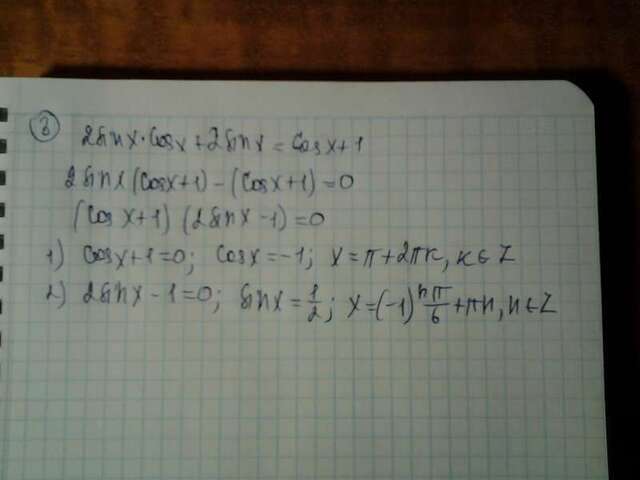 ③ 2sinx·cosx+2sinx=cosx+1
2sinx(cosx+1)-(cosx+1)=0
(cosx+1)(2sinx-1)=0
1) cosx+1=0; cosx=-1; x=π+2πк, к∈Z
2) 2sinx-1=0; sinx=1/2; x=(-1)ⁿ π/6+πn, n∈Z